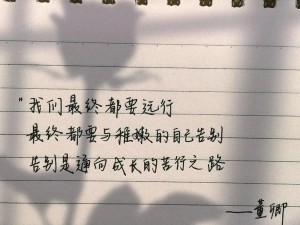 “我们最终都要远行
最终都要与稚嫩的自己告别
告别是通向成长的苦行之路
——董卿